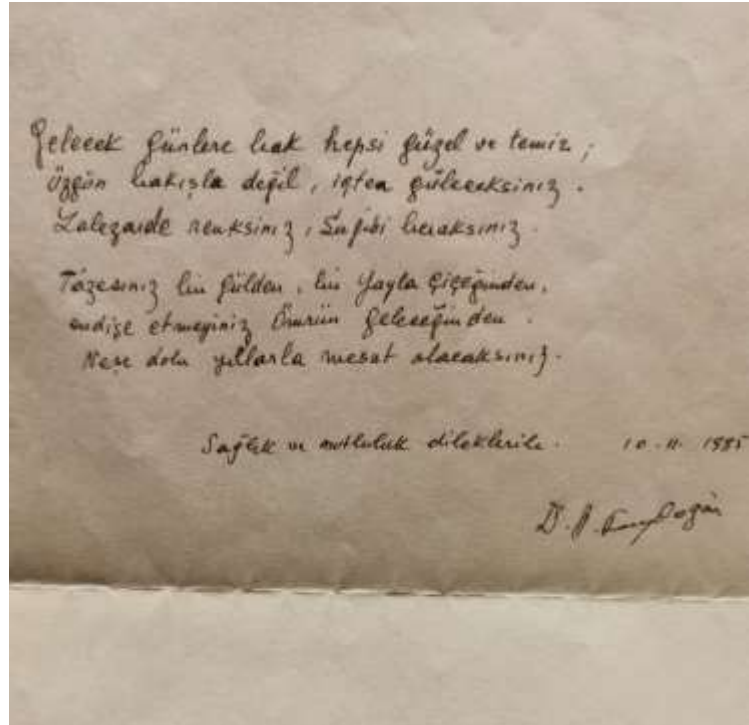 Gelecek günlere bak hepsi güzel ve temiz ;
Üzgün bakışla değil , içten güleceksiniz .
Lalezarde renksiniz , Su gibi beraksınız .
Tazesiniz bin gülden , bin yayla çiçeğinden ,
endişe etmeyiniz Ömrün geleceğinden .
Neşe dolu yıllarla mesut olacaksınız .
Sağlık ve mutluluk dileklerile . 10 - 11 - 1985
D. A.